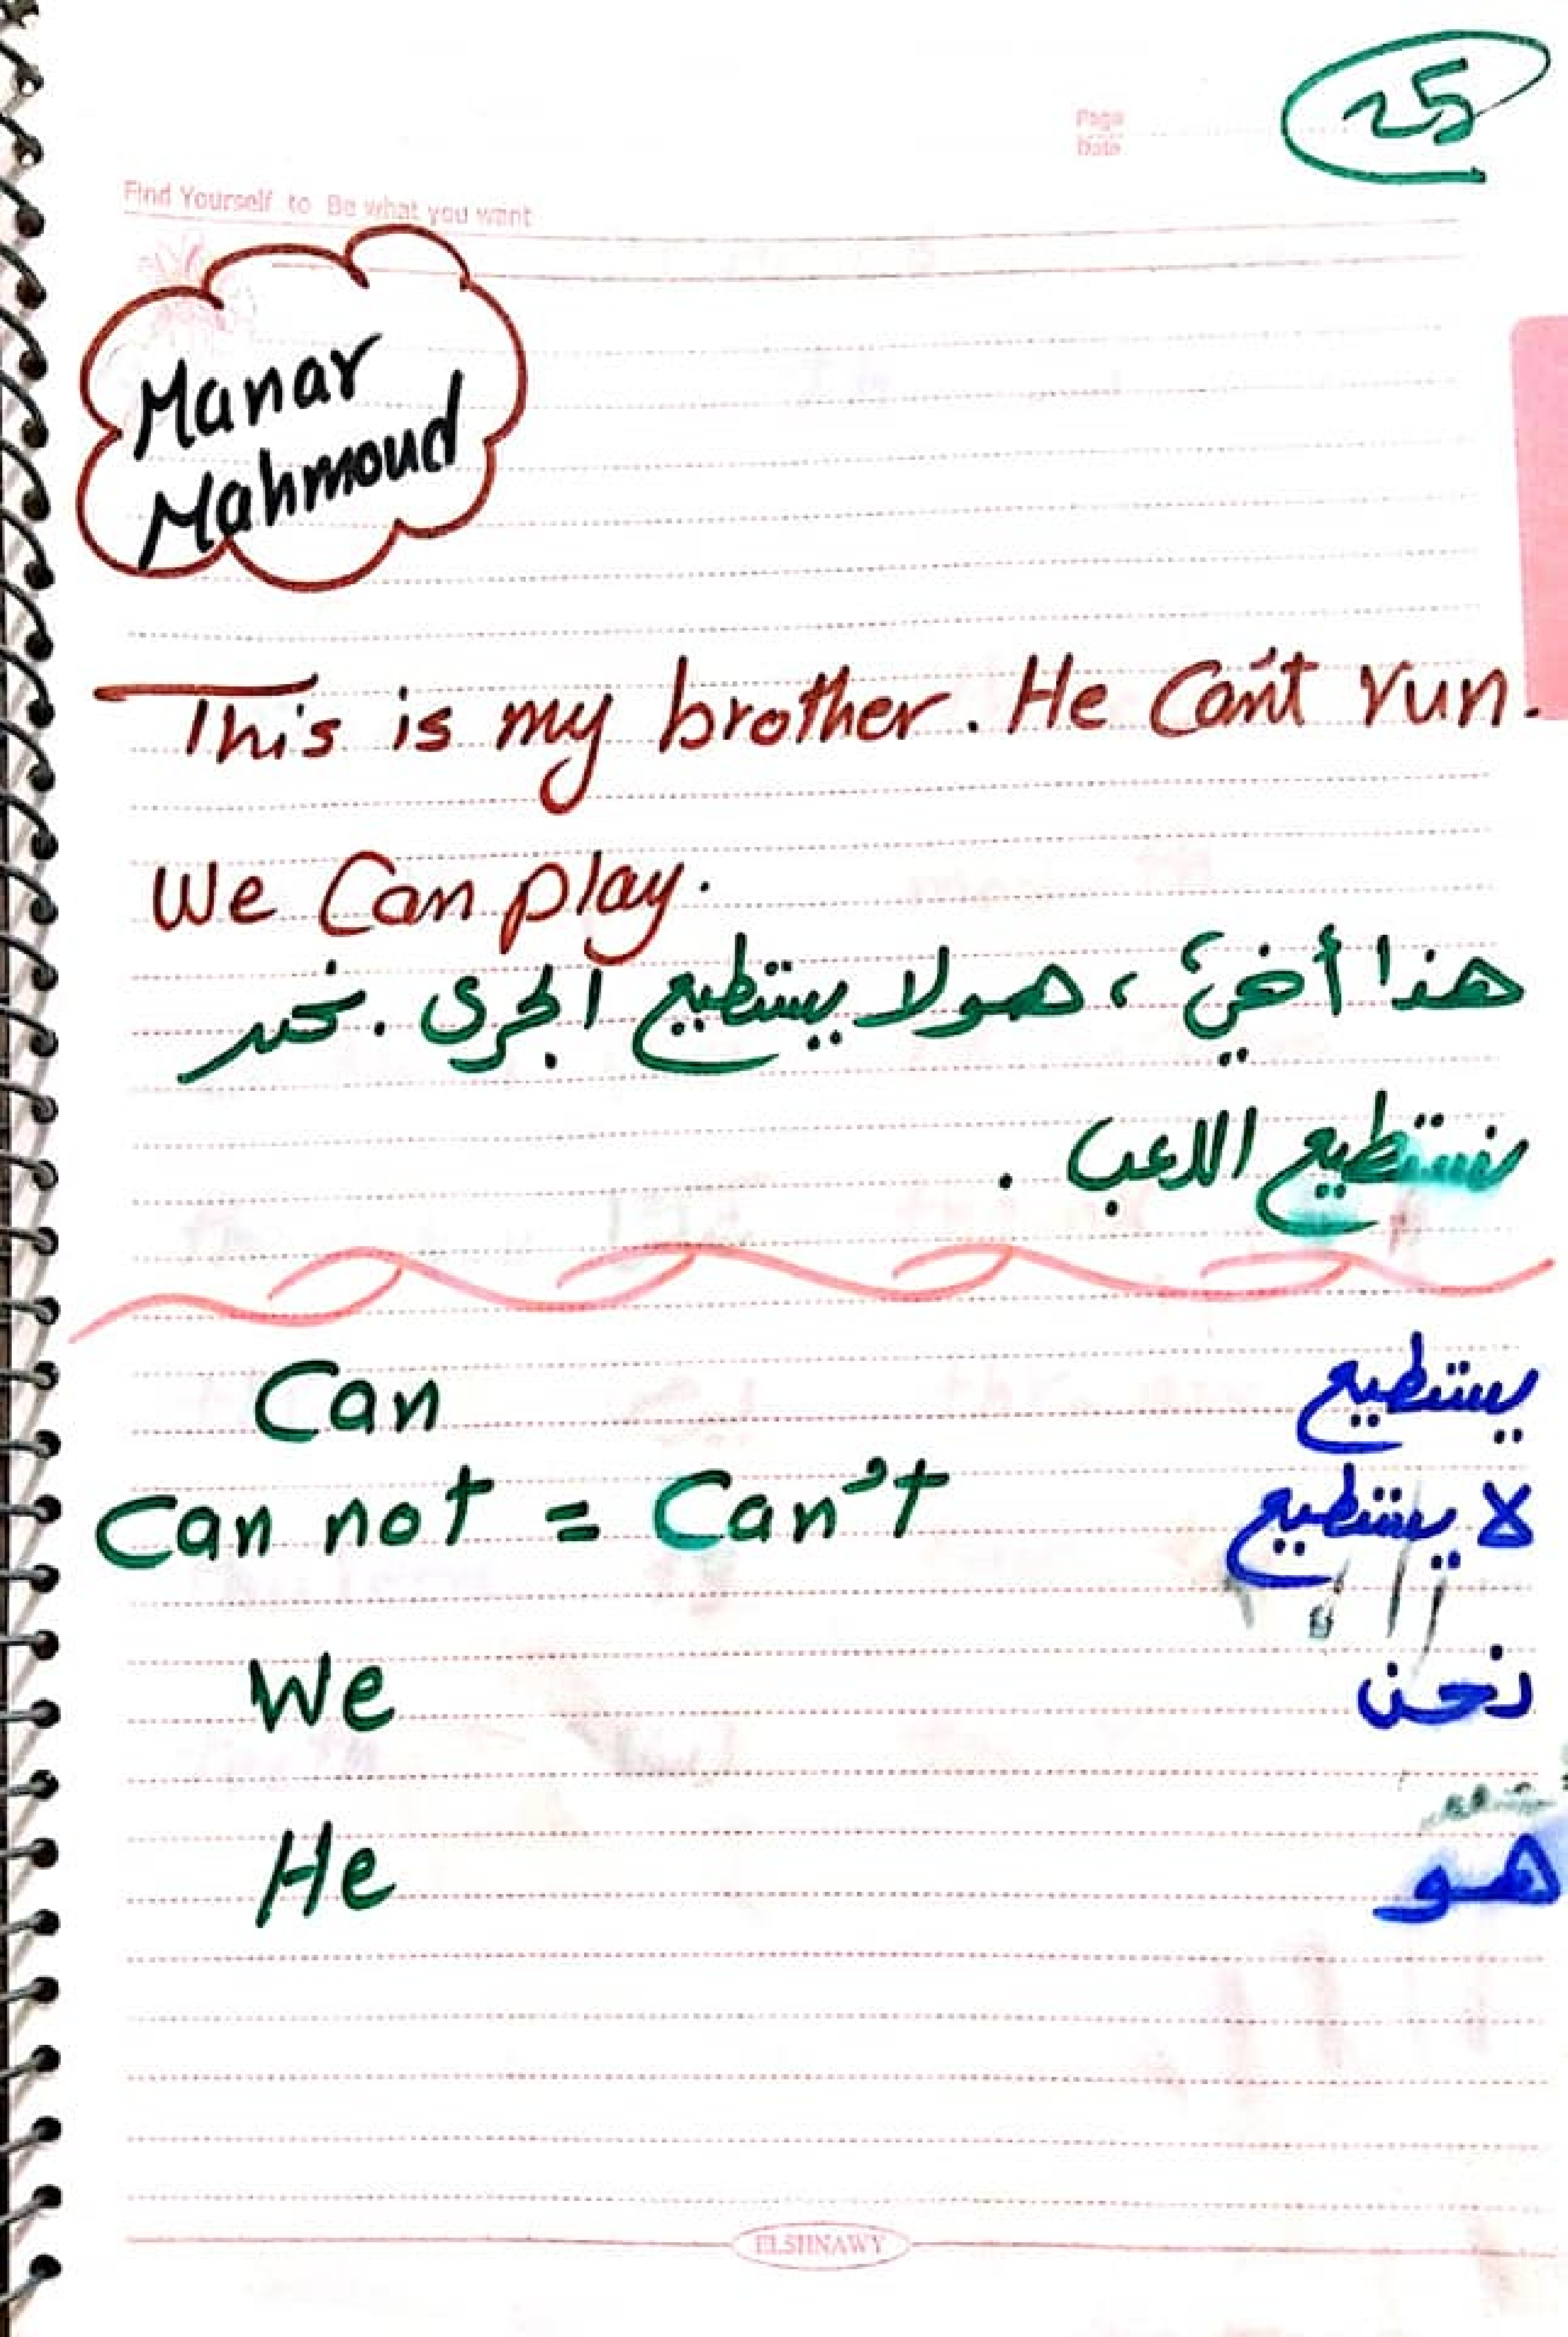 25
Page
Date
Find Yourself to Be what you want
Manar
Mahmoud
This is my brother. He Can't run.
We Can play.
هذا أخي، هو لا يستطيع الجرى. نحن
نستطيع اللعب.
Can يستطيع
Can not = Can't لا يستطيع
We نحن
He هو
ELSHNAWY